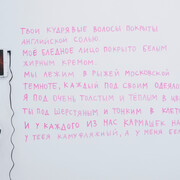 ТВОИ КУДРЯВЫЕ ВОЛОСЫ ПОКРЫТЫ
АНГЛИЙСКОЙ СОЛЬЮ.
МОЁ БЛЕДНОЕ ЛИЦО ПОКРЫТО БЕЛЫМ
ЖИРНЫМ КРЕМОМ.
МЫ ЛЕЖИМ В РЫЖЕЙ МОСКОВСКОЙ
ТЕМНОТЕ, КАЖДЫЙ ПОД СВОИМ ОДЕЯЛО
Я ПОД ОЧЕНЬ ТОЛСТЫМ И ТЕПЛЫМ В
ТЫ ПОД ШЕРСТЯНЫМ И ТОНКИМ В
И У КАЖДОГО ИЗ НАС КАРМАШЕК НА
У ТЕБЯ КАМУФЛЯЖНЫЙ, А У МЕНЯ